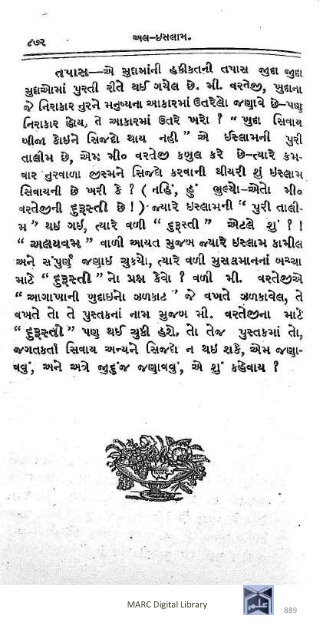 ૮૭૨ અલ-ઇસલામ.
તપાસ—એ મુદ્દામાંની હકીકતની તપાસ જુદા જુદા
મુદ્દાઓમાં પુરતી રીતે થઈ ગયેલ છે. મી. વરતેજી, ખુદાના
જે નિરાકાર નુરને મનુષ્યના આકારમાં ઉતરેલો જણાવે છે–પણ
નિરાકાર હોય, તે આકારમાં ઉતરે ખરો ? “ ખુદા સિવાય
બીજા કોઇને સિજદો થાય નહી ” એ ઇસ્લામની પુરી
તાલીમ છે, એમ મી૦ વરતેજી કબુલ કરે છે–ત્યારે કમ-
બાર નુરવાળા જીસ્મને સિજદો કરવાની થીયરી શું ઇસ્લામ
સિવાયની છે ખરી કે ? ( નહિં, હું ભુલ્યો—એતો મી૦
વરતેજીની દુરૂસ્તી છે ! ) જ્યારે ઇસ્લામની “ પુરી તાલી-
મ ” થઇ ગઈ, ત્યારે વળી “ દુરૂસ્તી ” એટલે શું ? !
“ અલયવમ ” વાળી આયત મુજબ જ્યારે ઇસ્લામ કામીલ
અને સંપુર્ણ જણાઇ ચુકયો, ત્યારે વળી મુસલમાનનાં બચ્ચા
માટે “ દુરૂસ્તી ” નો પ્રશ્ન કેવો ? વળી મી. વરતેજીએ
“ આગાખાની ખુદાઇનો ગળકાટ ” જે વખતે ગળકાવેલ, તે
વખતે તો તે પુસ્તકનાં નામ મુજબ મી. વરતેજીના માટે
“ દુરૂસ્તી ” પણ થઈ ચુકી હશે, તો તેજ પુસ્તકમાં તો,
જગતકર્તા સિવાય અન્યને સિજદો ન થઈ શકે, એમ જણા-
વવું, અને અત્રે જુદુંજ જણાવવું, એ શું કહેવાય ?
MARC Digital Library
889